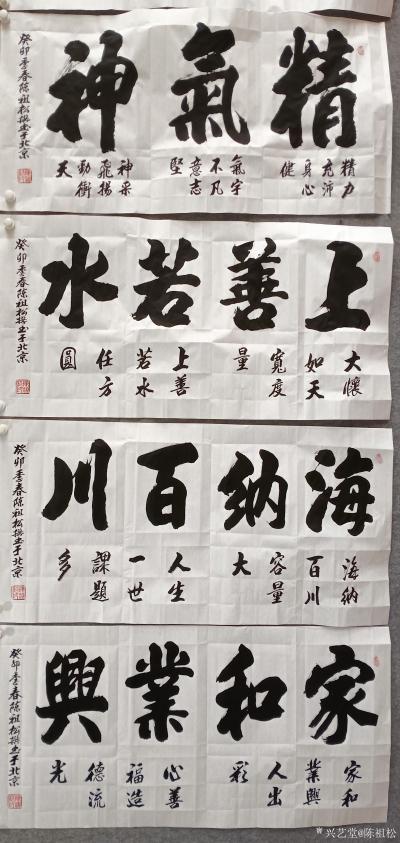 精氣神
精力
充沛
身心
健
氣宇
不凡
意志
堅
神采
飛揚
勁衝
天
癸卯季春陈祖松撰书于北京
上善若水
大懷
如天
寬度
量
上善
若水
任方
圓
癸卯季春陈祖松撰书于北京
海納百川
海納
百川
容量
大
人生
一世
課題
多
癸卯季春陈祖松撰书于北京
家和業興
家和
業興
人出
彩
心善
福造
德流
光
癸卯季春陈祖松撰书于北京
兴艺堂@陈祖松